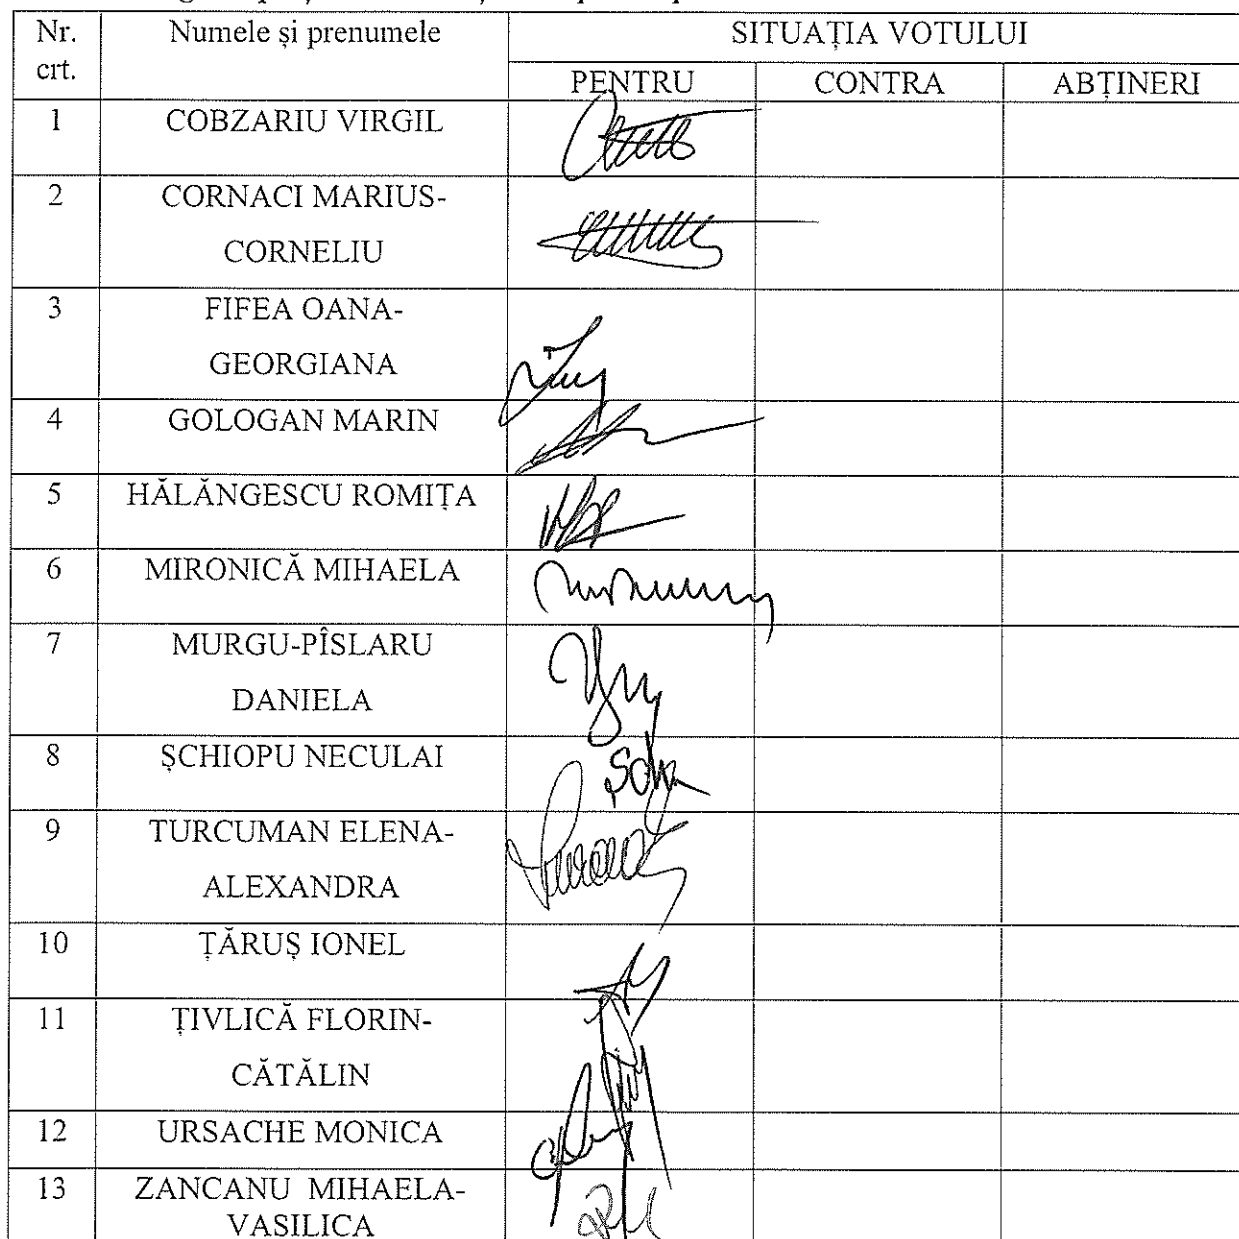 Nr. crt. Numele și prenumele SITUAȚIA VOTULUI
PENTRU CONTRA ABȚINERI
1 COBZARIU VIRGIL
2 CORNACI MARIUS-
CORNELIU
3 FIFEA OANA-
GEORGIANA
4 GOLOGAN MARIN
5 HĂLĂNGESCU ROMIȚA
6 MIRONICĂ MIHAELA
7 MURGU-PÎSLARU
DANIELA
8 ȘCHIOPU NECULAI
9 TURCUMAN ELENA-
ALEXANDRA
10 ȚĂRUȘ IONEL
11 ȚIVLICĂ FLORIN-
CĂTĂLIN
12 URSACHE MONICA
13 ZANCANU MIHAELA-
VASILICA